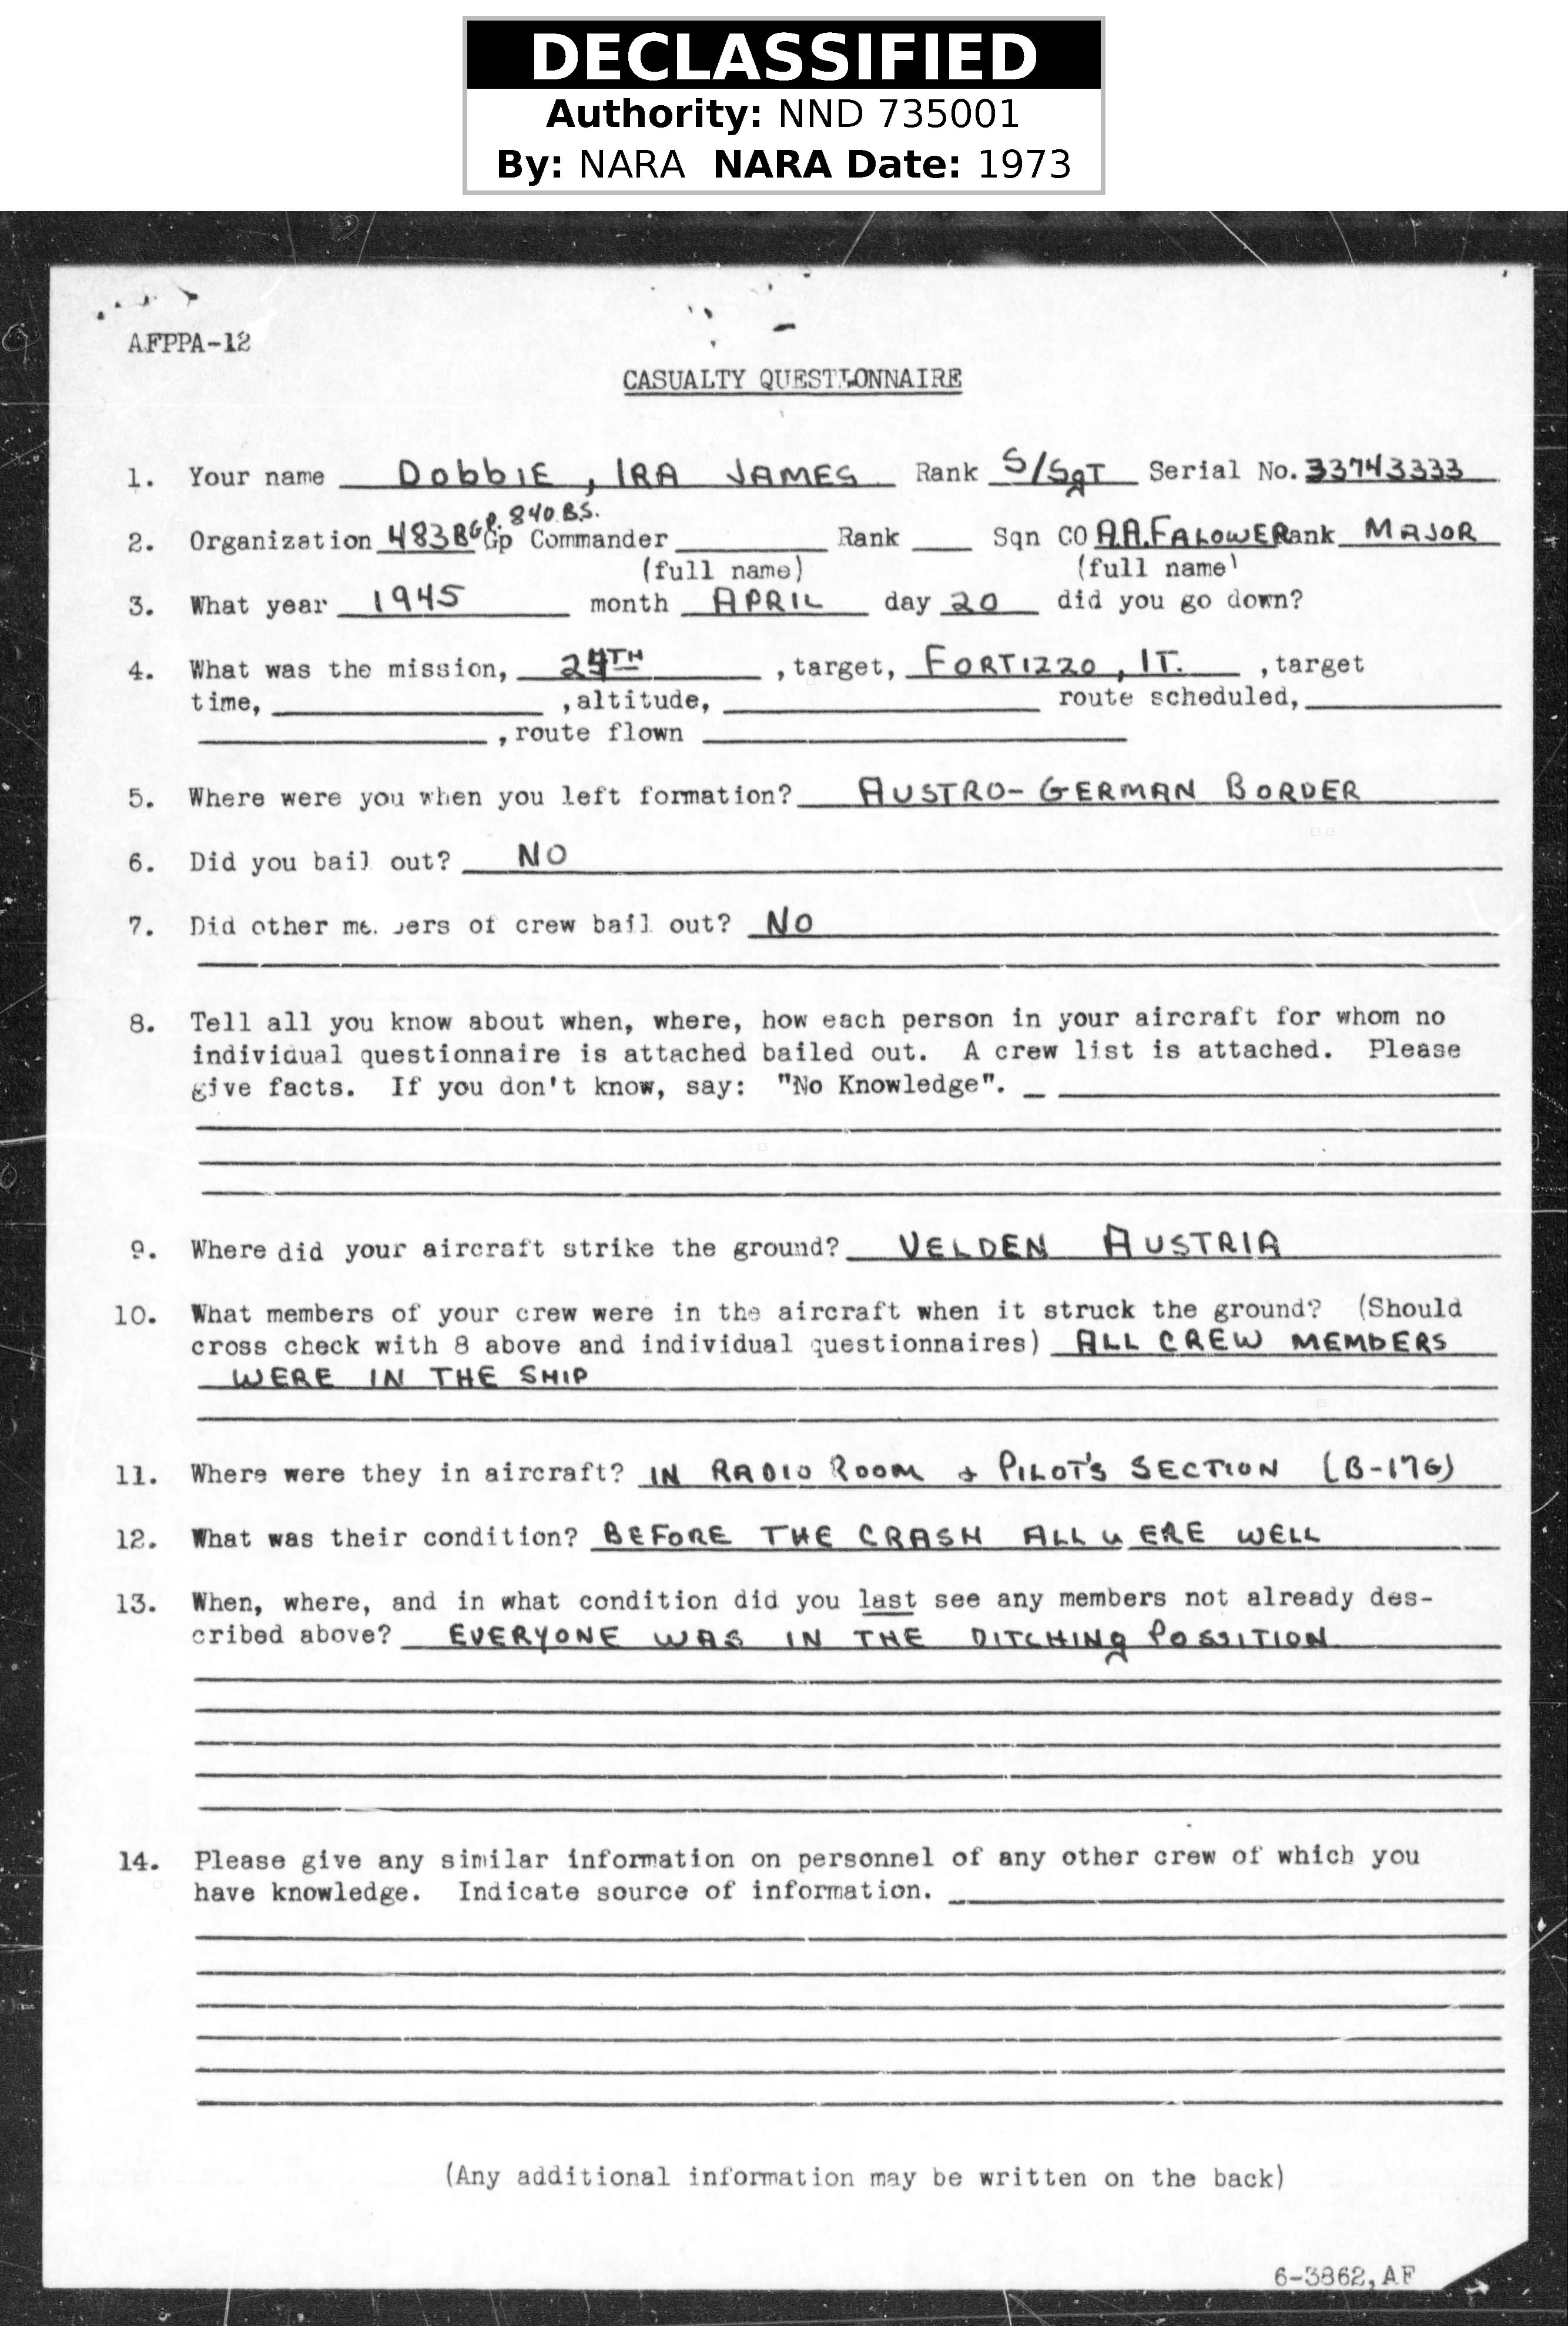 DECLASSIFIED
Authority: NND 735001
By: NARA NARA Date: 1973
AFPPA-12
CASUALTY QUESTIONNAIRE
1. Your name DobbIE, IRA JAMES Rank S/SgT Serial No. 33743333
840 B.S.
2. Organization 483 BGp. Gp Commander Rank Sqn CO A.A.FALOWER Rank MAJOR
(full name) (full name)
3. What year 1945 month APRIL day 20 did you go down?
4. What was the mission, TH , target, FORTIZZO, IT. , target
time, , altitude, route scheduled,
, route flown
5. Where were you when you left formation? AUSTRO-GERMAN BORDER
6. Did you bail out? NO
7. Did other me. ers of crew bail out? NO
8. Tell all you know about when, where, how each person in your aircraft for whom no
individual questionnaire is attached bailed out. A crew list is attached. Please
give facts. If you don't know, say: "No Knowledge".
9. Where did your aircraft strike the ground? VELDEN AUSTRIA
10. What members of your crew were in the aircraft when it struck the ground? (Should
cross check with 8 above and individual questionnaires) ALL CREW MEMBERS
WERE IN THE SHIP
11. Where were they in aircraft? IN RADIO ROOM & PILOT'S SECTION (B-17G)
12. What was their condition? BEFORE THE CRASH ALL WERE WELL
13. When, where, and in what condition did you last see any members not already des-
cribed above? EVERYONE WAS IN THE DITCHING POSSITION
14. Please give any similar information on personnel of any other crew of which you
have knowledge. Indicate source of information.
(Any additional information may be written on the back)
6-3862, AF